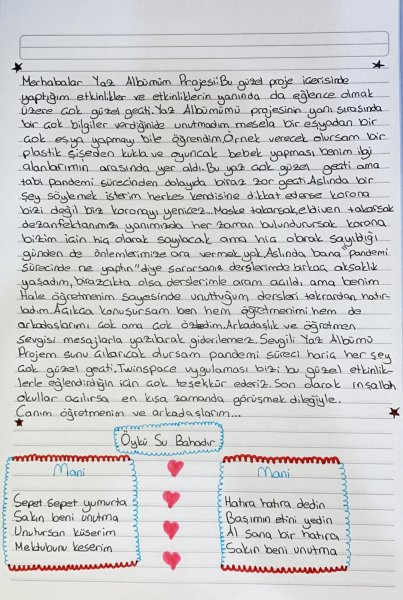 Merhabalar Yaz Albümüm Projesi:Bu güzel proje içerisinde
yaptığım etkinlikler ve etkinliklerin yanında da eğlence olmak
üzere çok güzel geçti.Yaz Albümümü projesinin yanı sırasında
bir çok bilgiler verdiğinide unutmadım mesela bir eşyadan bir
çok eşya yapmayı bile öğrendim.Örnek verecek olursam bir
plastik şişeden kukla ve oyuncak bebek yapması benim ilgi
alanlarımın arasında yer aldı.Bu yaz çok güzel geçti ama
tabi pandemi sürecinden dolayıda biraz zor geçti.Aslında bir
şey söylemek isterim herkes kendisine dikkat ederse korona
bizi değil biz koronayı yenicez.Maske takarsak,eldiven takarsak
dezanfektanımızı yanımızda her zaman bulundurursak korona
bizim için hiç olarak sayılacak ama hiç olarak sayıldığı
günden de önlemlerimize ara vermek yok.Aslında bana pandemi
sürecinde ne yaptın" diye sorarsanız derslerimde birkaç aksaklık
yaşadım, birazcıkta olsa derslerimle aram açıldı ama benim
Hale öğretmenim sayesinde unuttuğum dersleri tekrardan hatır-
ladım.Açıkça konuşursam ben hem öğretmenimi hem de
arkadaşlarımı çok ama çok özledim.Arkadaşlık ve öğretmen
sevgisi mesajlarla yazılarak giderilemez.Sevgili Yaz Albümü
Projem şunu çıkarıcak olursam pandemi süreci hariç her şey
çok güzel geçti.Twinspace uygulaması bizi bu güzel etkinlik-
lerle eğlendirdiğin için çok teşekkür ederiz.Son olarak inşallah
okullar açılırsa en kısa zamanda görüşmek dileğiyle.
Canım öğretmenim ve arkadaşlarım...
Öykü Su Bahadır
Mani
Sepet sepet yumurta
Sakın beni unutma
Unutursan küserim
Mektubunu keserim
Mani
Hatıra hatıra dedin
Başımın etini yedin
Al sana bir hatıra
Sakın beni unutma